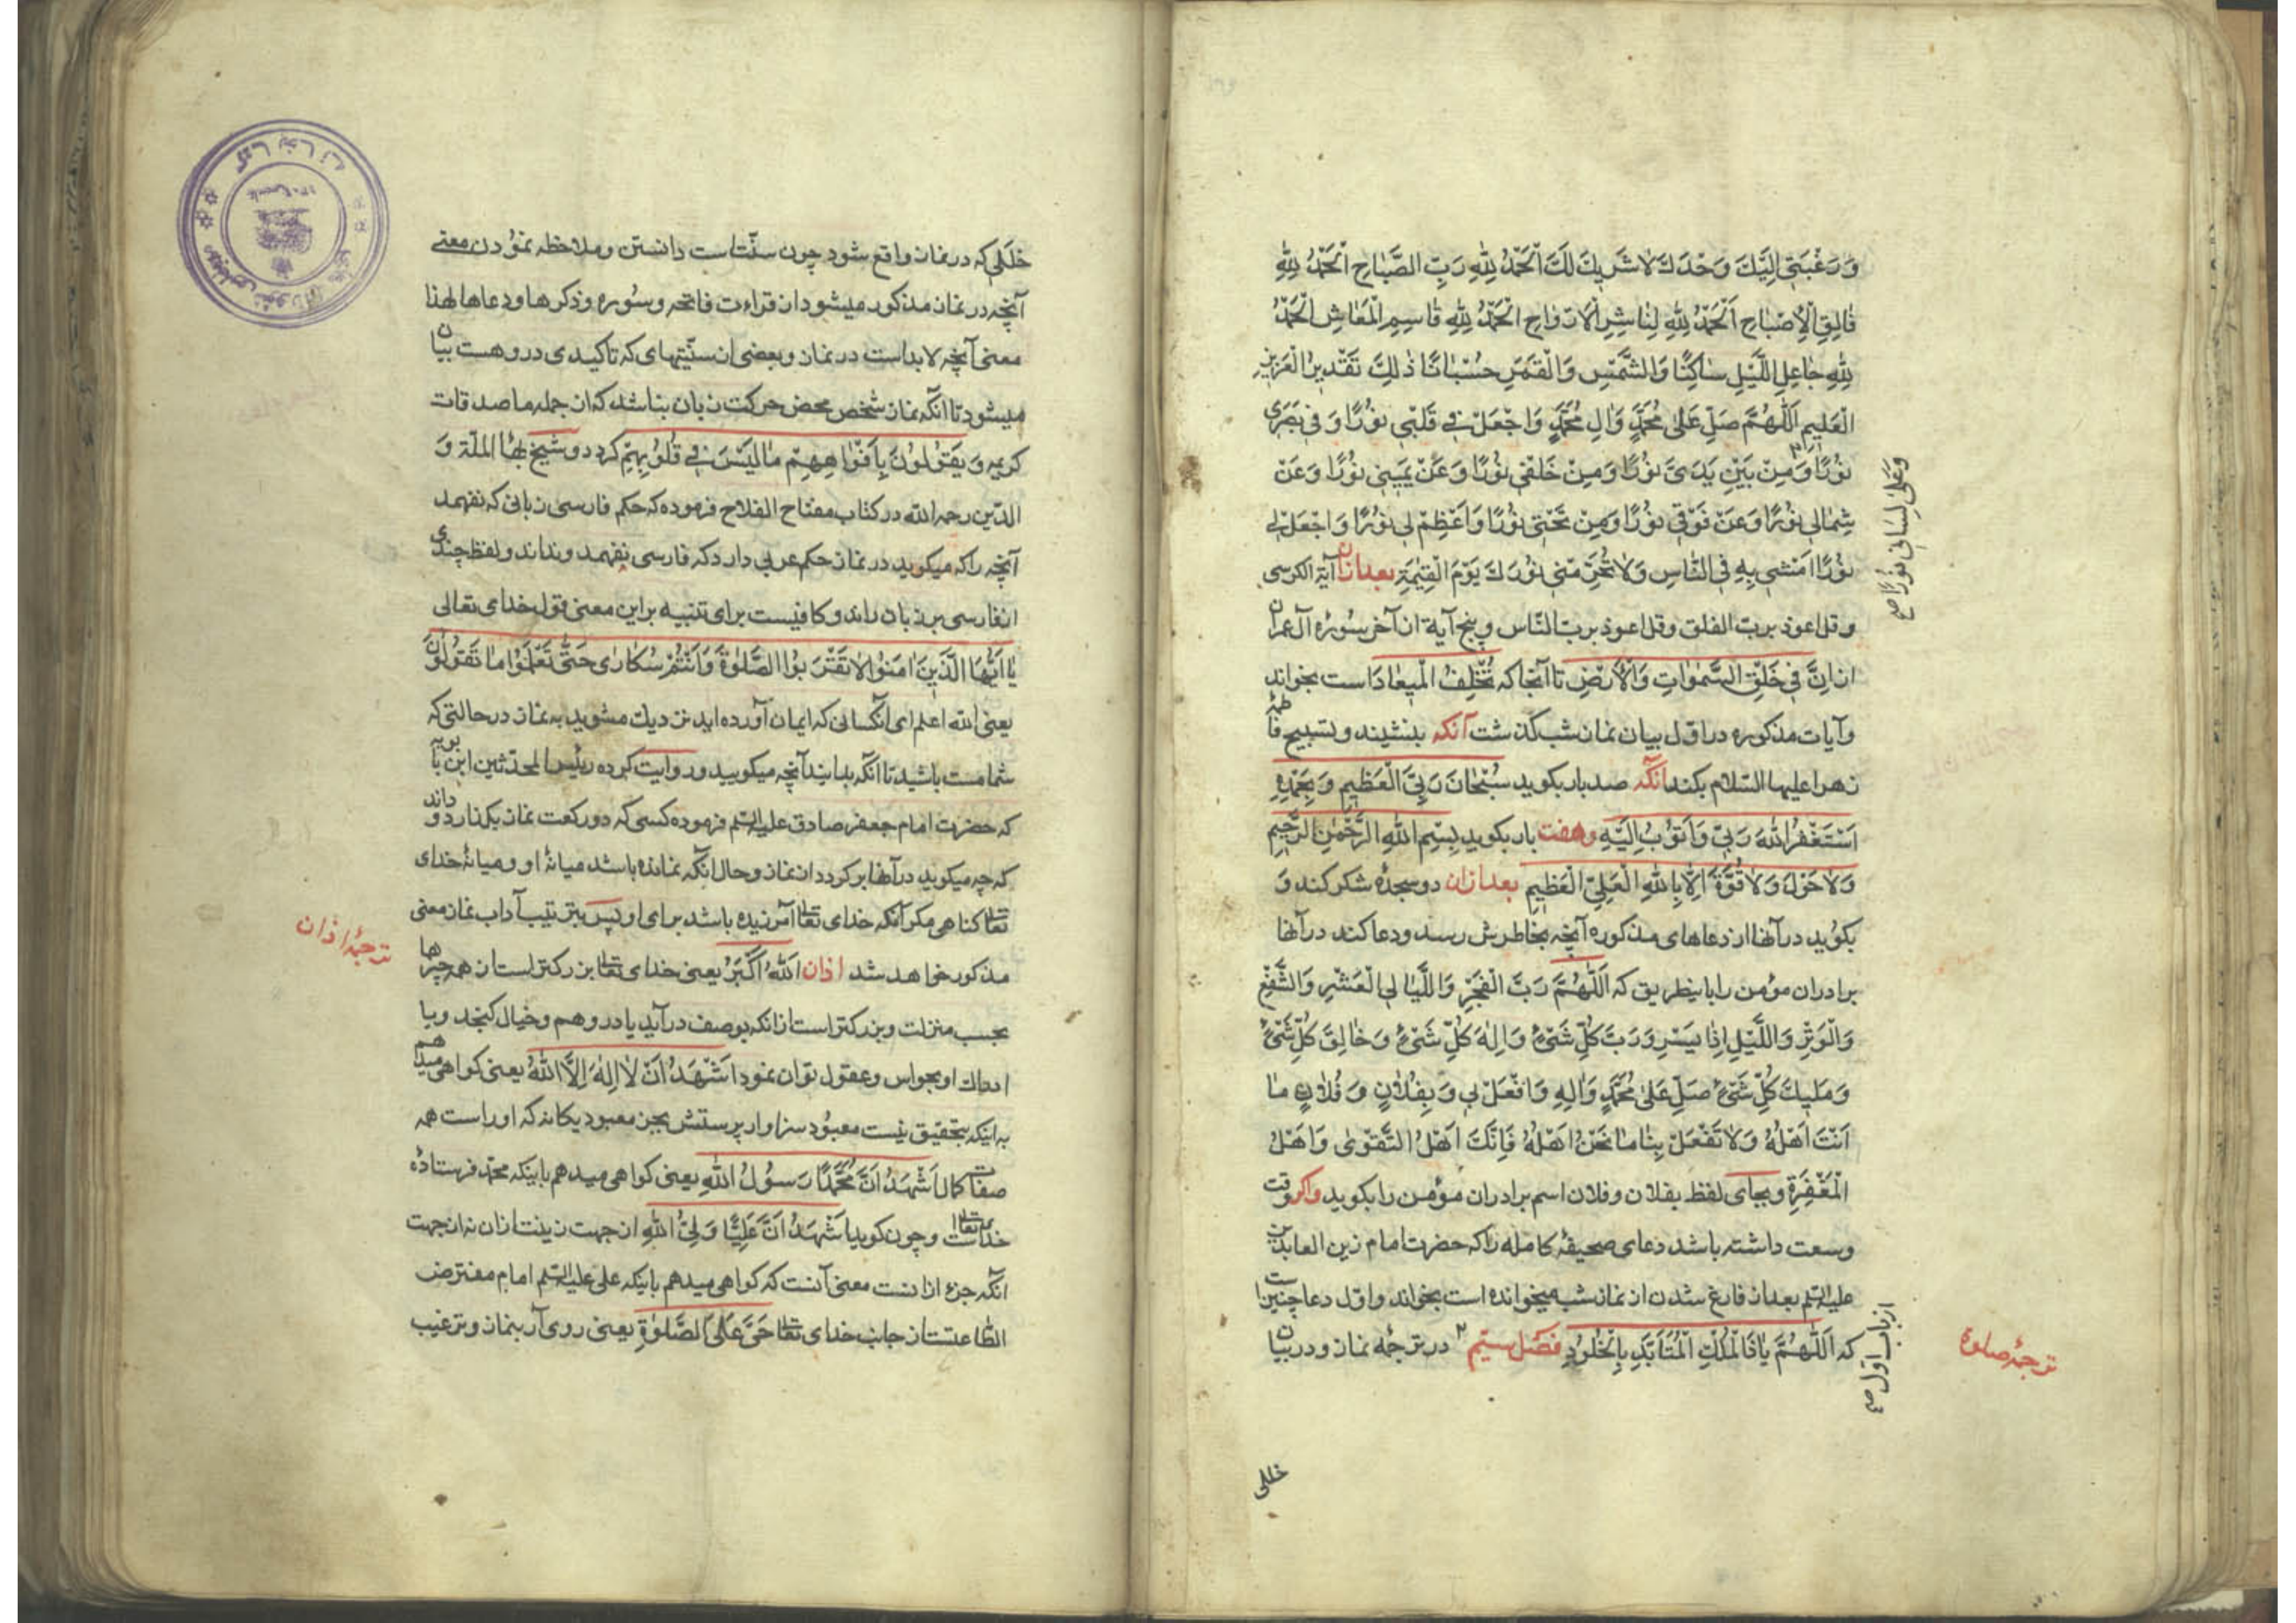 وَرَغْبَتِي اِلَيْكَ وَحْدَكَ لَا شَرِيكَ لَكَ اَلْحَمْدُ لِلّٰهِ رَبِّ الصَّبَاحِ اَلْحَمْدُ لِلّٰهِ
فَالِقِ الْاِصْبَاحِ اَلْحَمْدُ لِلّٰهِ نَاشِرِ الْاَرْوَاحِ اَلْحَمْدُ لِلّٰهِ قَاسِمِ الْمَعَاشِ اَلْحَمْدُ
لِلّٰهِ جَاعِلِ اللَّيْلِ سَاكِنًا وَالشَّمْسِ وَالْقَمَرِ حُسْبَانًا ذٰلِكَ تَقْدِيرُ الْعَزِيزِ
الْعَلِيمِ اَللّٰهُمَّ صَلِّ عَلٰى مُحَمَّدٍ وَاٰلِ مُحَمَّدٍ وَاجْعَلْ فِي قَلْبِي نُورًا وَفِي بَصَرِي
نُورًا وَمِنْ بَيْنِ يَدَيَّ نُورًا وَمِنْ خَلْفِي نُورًا وَعَنْ يَمِينِي نُورًا وَعَنْ
وَعَلٰى لِسَانِي نُورًا صح
شِمَالِي نُورًا وَعَنْ فَوْقِي نُورًا وَمِنْ تَحْتِي نُورًا وَاَعْظِمْ لِي نُورًا وَاجْعَلْ لِي
نُورًا اَمْشِي بِهِ فِي النَّاسِ وَلَا تَحْرِمْنِي نُورَكَ يَوْمَ الْقِيٰمَةِ بعد ازان آیة الکرسی
و قل اعوذ برب الفلق و قل اعوذ برب النّاس و پنج آیة از آخر سوره آل عمران
از اِنَّ فِي خَلْقِ السَّمٰوَاتِ وَالْاَرْضِ تا آنجا که تُخْلِفُ الْمِيعَادَ است بخواند
و آیات مذکوره در اوّل بیان نماز شب گذشت آنکه بنشیند و تسبیح فاطمه
زهرا علیها السّلام بکند آنکه صد بار بکوید سُبْحَانَ رَبِّيَ الْعَظِيمِ وَبِحَمْدِهِ
اَسْتَغْفِرُ اللّٰهَ رَبِّي وَاَتُوبُ اِلَيْهِ و هفت بار بکوید بِسْمِ اللّٰهِ الرَّحْمٰنِ الرَّحِيمِ
وَلَا حَوْلَ وَلَا قُوَّةَ اِلَّا بِاللّٰهِ الْعَلِيِّ الْعَظِيمِ بعد ازان دو سجدهٔ شکر کند و
بکوید در آنها از دعاهای مذکوره آنچه بخاطرش رسد و دعا کند در آنها
برادران مؤمن را باینطریق که اَللّٰهُمَّ رَبَّ الْفَجْرِ وَاللَّيَالِي الْعَشْرِ وَالشَّفْعِ
وَالْوَتْرِ وَاللَّيْلِ اِذَا يَسْرِ وَرَبَّ كُلِّ شَيْءٍ وَاِلٰهَ كُلِّ شَيْءٍ وَخَالِقَ كُلِّ شَيْءٍ
وَمَلِيكَ كُلِّ شَيْءٍ صَلِّ عَلٰى مُحَمَّدٍ وَاٰلِهِ وَافْعَلْ بِي وَبِفُلَانٍ وَفُلَانٍ مَا
اَنْتَ اَهْلُهُ وَلَا تَفْعَلْ بِنَا مَا نَحْنُ اَهْلُهُ فَاِنَّكَ اَهْلُ التَّقْوٰى وَاَهْلُ
الْمَغْفِرَةِ و بجای لفظ بفلان و فلان اسم برادران مؤمن را بکوید واکر وقت
وسعت داشته باشد دعای صحیفهٔ کامله را که حضرت امام زین العابدین
علیه السلم بعد از فارغ شدن از نماز شب میخوانده است بخواند و اوّل دعا چنین است
که اَللّٰهُمَّ يَا ذَا الْمُلْكِ الْمُتَاَبِّدِ بِالْخُلُودِ فصل سیّم در ترجمهٔ نماز و در بیان
از باب اول صح
ترجمهٔ صلوة
خللی
خللی که در نماز واقع شود چون سنّتست دانستن و ملاحظه نمودن معنی
آنچه در نماز مذکور میشود از قراءت فاتحه و سوره و ذکرها و دعاها لهذا
معنی آنچه لابد است در نماز و بعضی از سنّتهای که تاکیدی درو هست بیان
میشود تا آنکه نماز شخص محض حرکت زبان نباشد که از جمله ما صدقات
کریمه وَيَقُولُونَ بِاَفْوَاهِهِمْ مَا لَيْسَ فِي قُلُوبِهِمْ کردد و شیخ بهاء الملّة و
الدّین رحمه الله در کتاب مفتاح الفلاح فرموده که حکم فارسی زبانی که نفهمد
آنچه را که میکوید در نماز حکم عربی دارد که فارسی نفهمد و نداند و لفظ چندی
از فارسی بر زبان راند و کافیست برای تنبیه بر این معنی قول خدای تعالی
يَا اَيُّهَا الَّذِينَ اٰمَنُوا لَا تَقْرَبُوا الصَّلٰوةَ وَاَنْتُمْ سُكَارٰى حَتّٰى تَعْلَمُوا مَا تَقُولُونَ
یعنی الله اعلم ای آنکسانی که ایمان آورده اید نزدیك مشوید به نماز در حالتی که
شما مست باشید تا آنکه بدانید آنچه میکویید و روایت کرده رئیس المحدّثین ابن بابویه
که حضرت امام جعفر صادق علیه السلم فرموده کسی که دو رکعت نماز بکذارد و داند
که چه میکوید در آنها بر کردد از نماز و حال آنکه نمانده باشد میانهٔ او و میانهٔ خدای
تعالی کناهی مکر آنکه خدای تعالی آمرزیده باشد برای او پس بترتیب آداب نماز معنی
مذکور خواهد شد اذان اَللّٰهُ اَكْبَرُ یعنی خدای تعالی بزرکتر است از همه چیزها
ترجمهٔ اذان
بحسب منزلت و بزرکتر است از آنکه بوصف در آید یا در وهم و خیال کنجد و یا
ادراك او بحواس و عقول توان نمود اَشْهَدُ اَنْ لَا اِلٰهَ اِلَّا اللّٰهُ یعنی کواهی میدهم
به اینکه بتحقیق نیست معبود سزاوار پرستش بجز معبود یکانه که او راست همه
صفات کمال اَشْهَدُ اَنَّ مُحَمَّدًا رَسُولُ اللّٰهِ یعنی کواهی میدهم باینکه محمّد فرستادهٔ
خدای تعالی است و چون کوید اَشْهَدُ اَنَّ عَلِيًّا وَلِيُّ اللّٰهِ از جهت زینت اذان نه از جهت
آنکه جزء اذانست معنی آنست که کواهی میدهم باینکه علی علیه السلم امام مفترض
الطّاعتست از جانب خدای تعالی حَيَّ عَلَى الصَّلٰوةِ یعنی روی آر بنماز و ترغیب